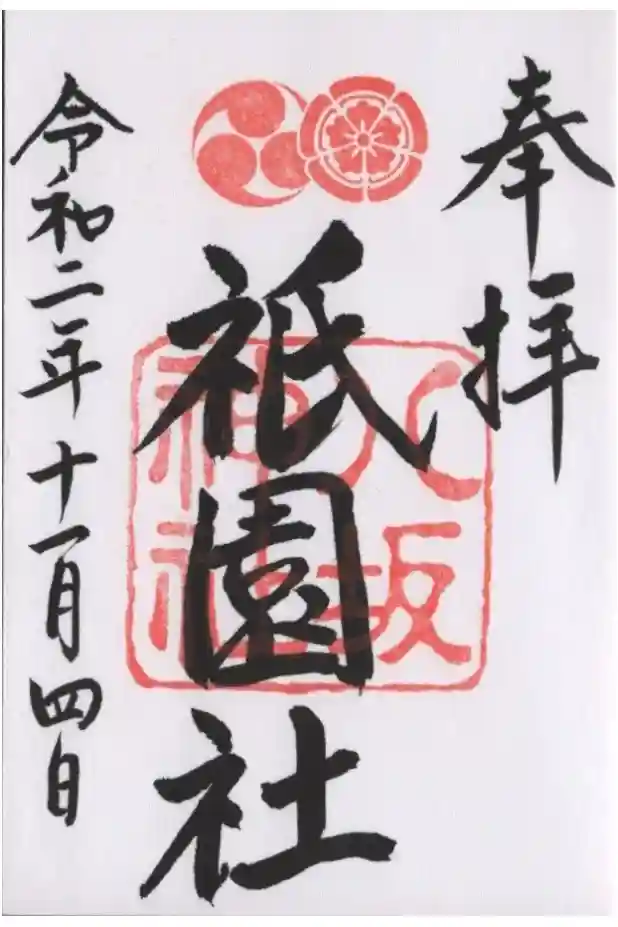 奉拝
八坂
神社
祇園社
令和二年十一月四日